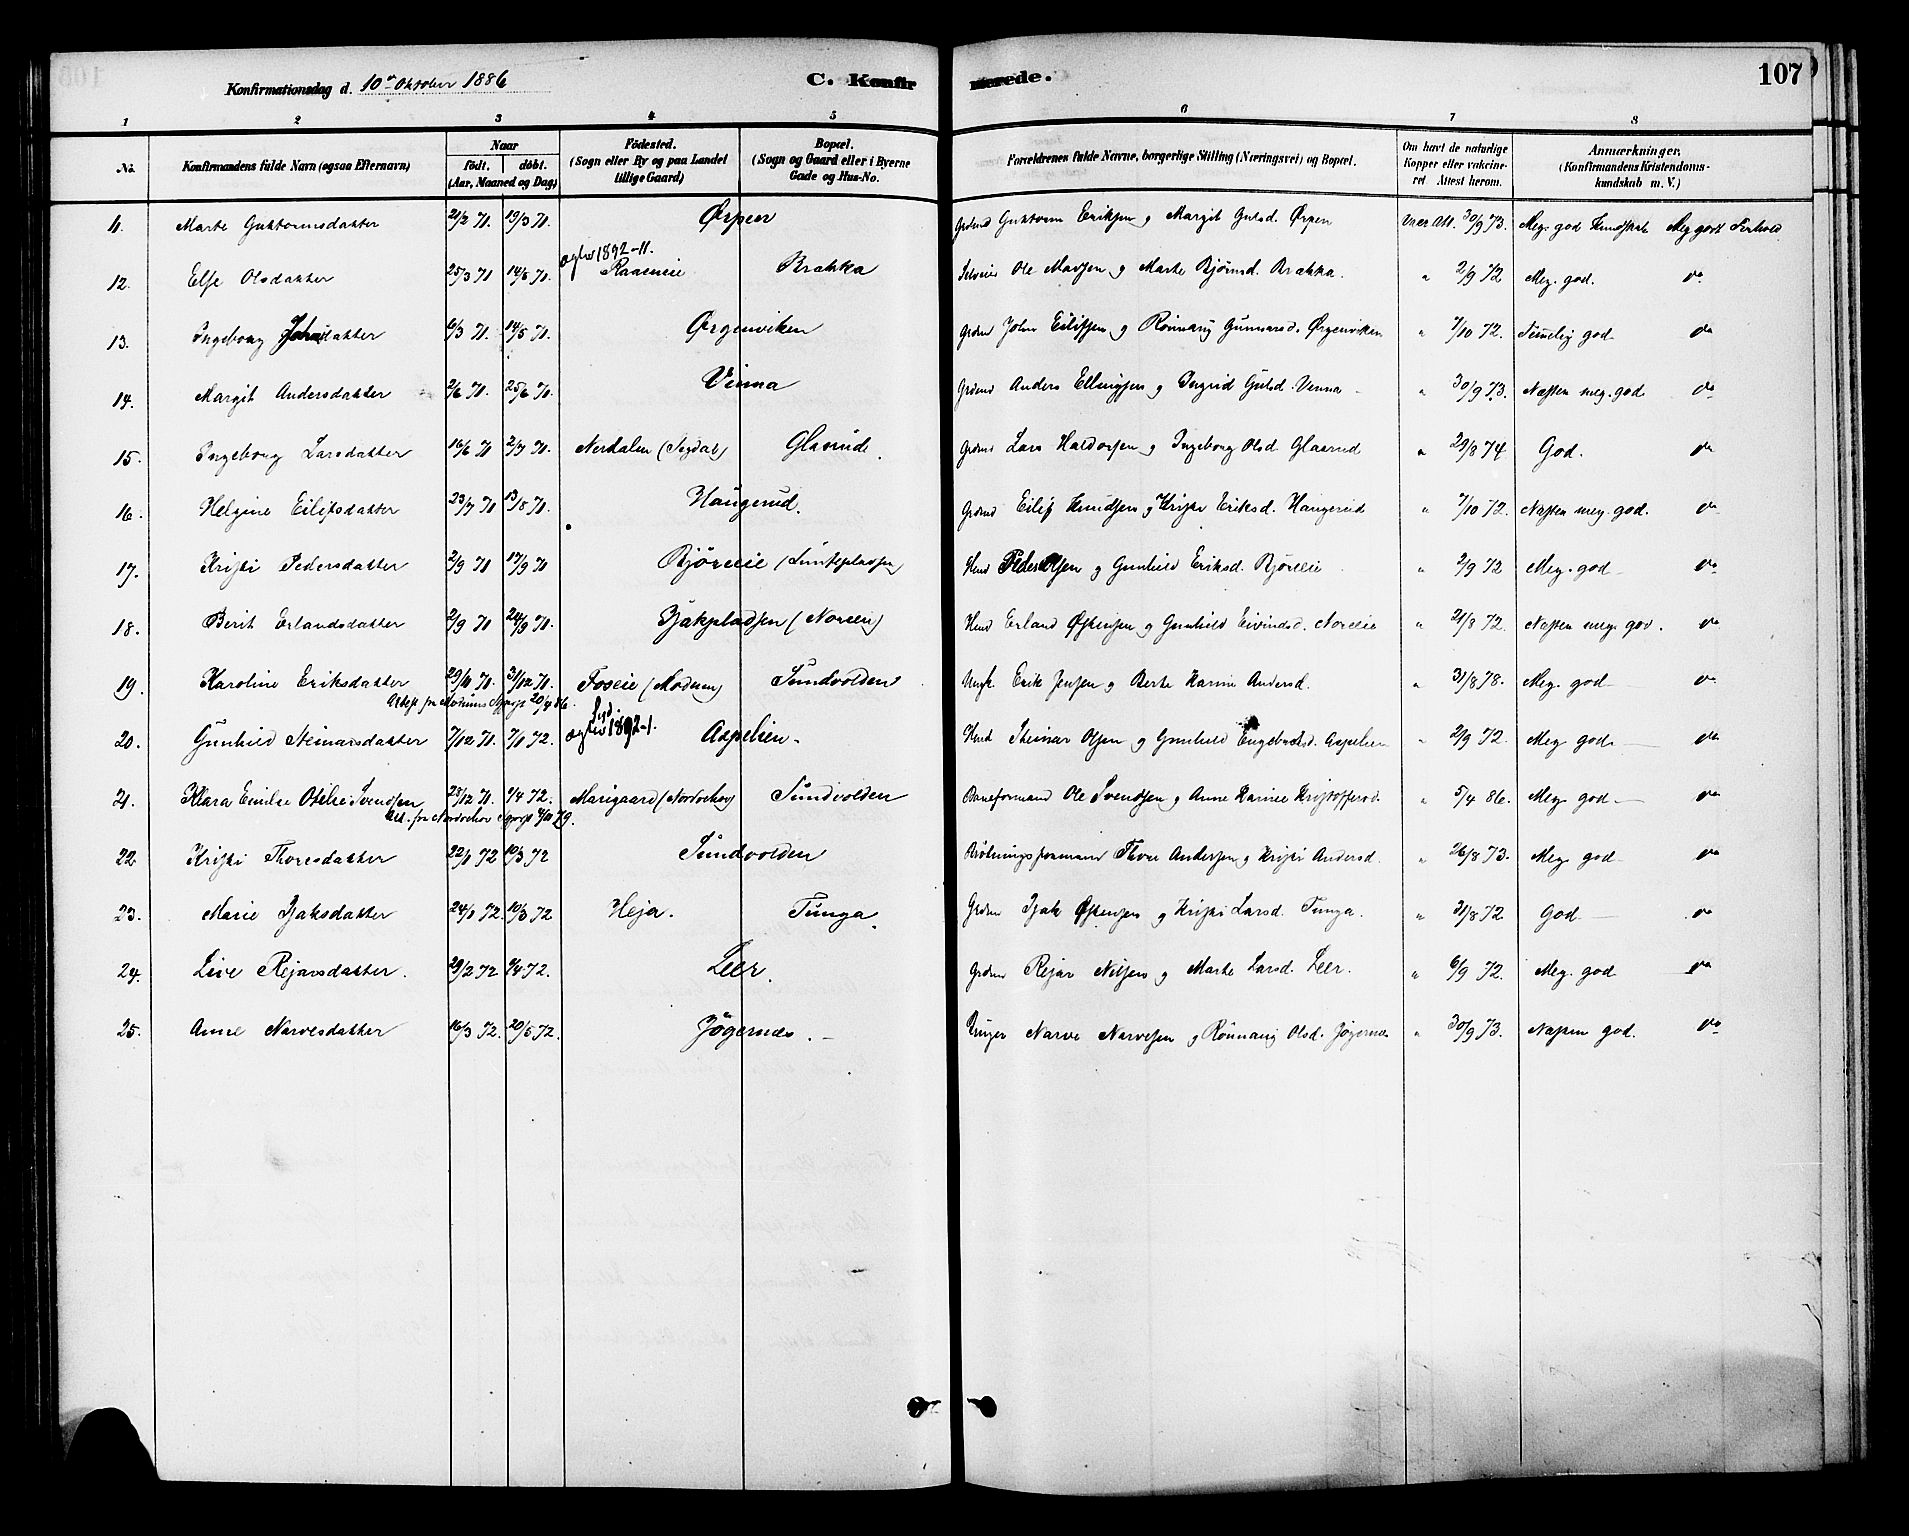 Konfirmationsdag d. 10de Oktober 1886 C. Konfirmerede. 107
1 2 3 4 5 6 7 8
No. Konfirmandens fulde Navn (ogsaa Efternavn) Naar født. døbt. (Aar, Maaned og Dag) Fødested. (Sogn eller By og paa Landet tillige Gaard) Bopæl. (Sogn og Gaard eller i Byerne Gade og Hus-No. Forældrenes fulde Navne, borgerlige Stilling (Næringsvei) og Bopæl. Om havt de naturlige Kopper eller vakcineret. Attest herom. Anmærkninger. (Konfirmandens Kristendomskundskab m. V.)
11. Marte Guttormsdatter 21/2 71. 19/3 71. Ørpen Grdmd Guttorm Eriksen og Margit Gulsd. Ørpen Vacc. Att. 30/9 73. Meg. god Kundskab Meg godt Forhold.
12. Else Olsdatter 25/3 71 14/5 71. ægtev 1892-11. Raameie Brækka Selveier Ole Madsen og Marte Bjørnsd. Brækka. " 2/9 72 Meg. god. do
13. Ingeborg Johnsdatter 6/3 71. 14/5 71. Ørgenviken Grdmd John Eilifsen og Rønnaug Gunnarsd. Ørgenviken " 7/10 72. Temmelig god do
14. Margit Andersdatter 2/6 71. 25/6 71. Vinna Grdmd Anders Ellingsen og Ingrid Gulsd. Vinna " 30/9 73. Næsten meg. god do
15. Ingeborg Larsdatter 16/6 71 2/7 71. Nerdalen (Sigdal) Glasrud. Grdmd Lars Haldorsen og Ingeborg Olsd. Glaarud " 29/8 74. God. do
16. Helgine Eilifsdatter 23/7 71 13/8 71. Haugerud. Grdmd Eilif Knudsen og Kristi Eriksd. Haugerud " 7/10 72. Næsten meg. god. do
17. Kristi Pedersdatter 2/9 71 17/9 71 Bjøreeie (Sunkepladsen) Hmd Peder Olsen og Gunhild Eriksd. Bjøreeie " 2/9 72 Meg. god do
18. Berit Erlandsdatter 2/9 71 24/9 71. Isakpladsen (Noreeie) Hmd Erland Østensen og Gunhild Eivindsd. Noreeie " 21/8 72. Næsten meg. god. do
19. Karoline Eriksdatter 29/10 71. 31/12 71. Foseie (Modum) Sundvolden Ungk. Erik Jensen og Berte Karine Andersd. " 31/8 78. Meg. god do
Attest fra Modums Sgprst 20/4 86.
20. Gunhild Steinarsdatter 7/12 71. 7/1 72. ægtev 1892-1. Aspelien Hmd Steinar Olsen og Gunhild Engebretsd. Aspelien " 2/9 72. Meg god do
21. Klara Emilie Otilie Svendsen 28/12 71. 1/4 72. Marigaard (Norderhov) Sundvolden Baneformand Ole Svendsen og Anne Karine Kristoffersd. " 5/4 86. Meg. god do
Att. fra Norderhov Sgprst
22. Kristi Thoresdatter 22/1 72 10/3 72 Sundvolden Brolægningsformand Thore Andersen og Kristi Andersd. " 26/8 73. Meg god do
23. Marie Isaksdatter 24/1 72. 10/3 72 Heja. Tunga. Grdmd Isak Østensen og Kristi Larsd. Tunga. " 31/8 72 God do
24. Live Rejarsdatter. 29/2 72 1/4 72. Leer. Grdmd Rejar Nilsen og Marte Larsd. Leer. " 6/9 72. Meg. god do
25. Anne Narvesdatter 16/3 72. 20/5 72. Jøgernæs. Narve Narvesen og Rønnaug Olsd. Jøgernæs " 30/9 73. Næsten god. do